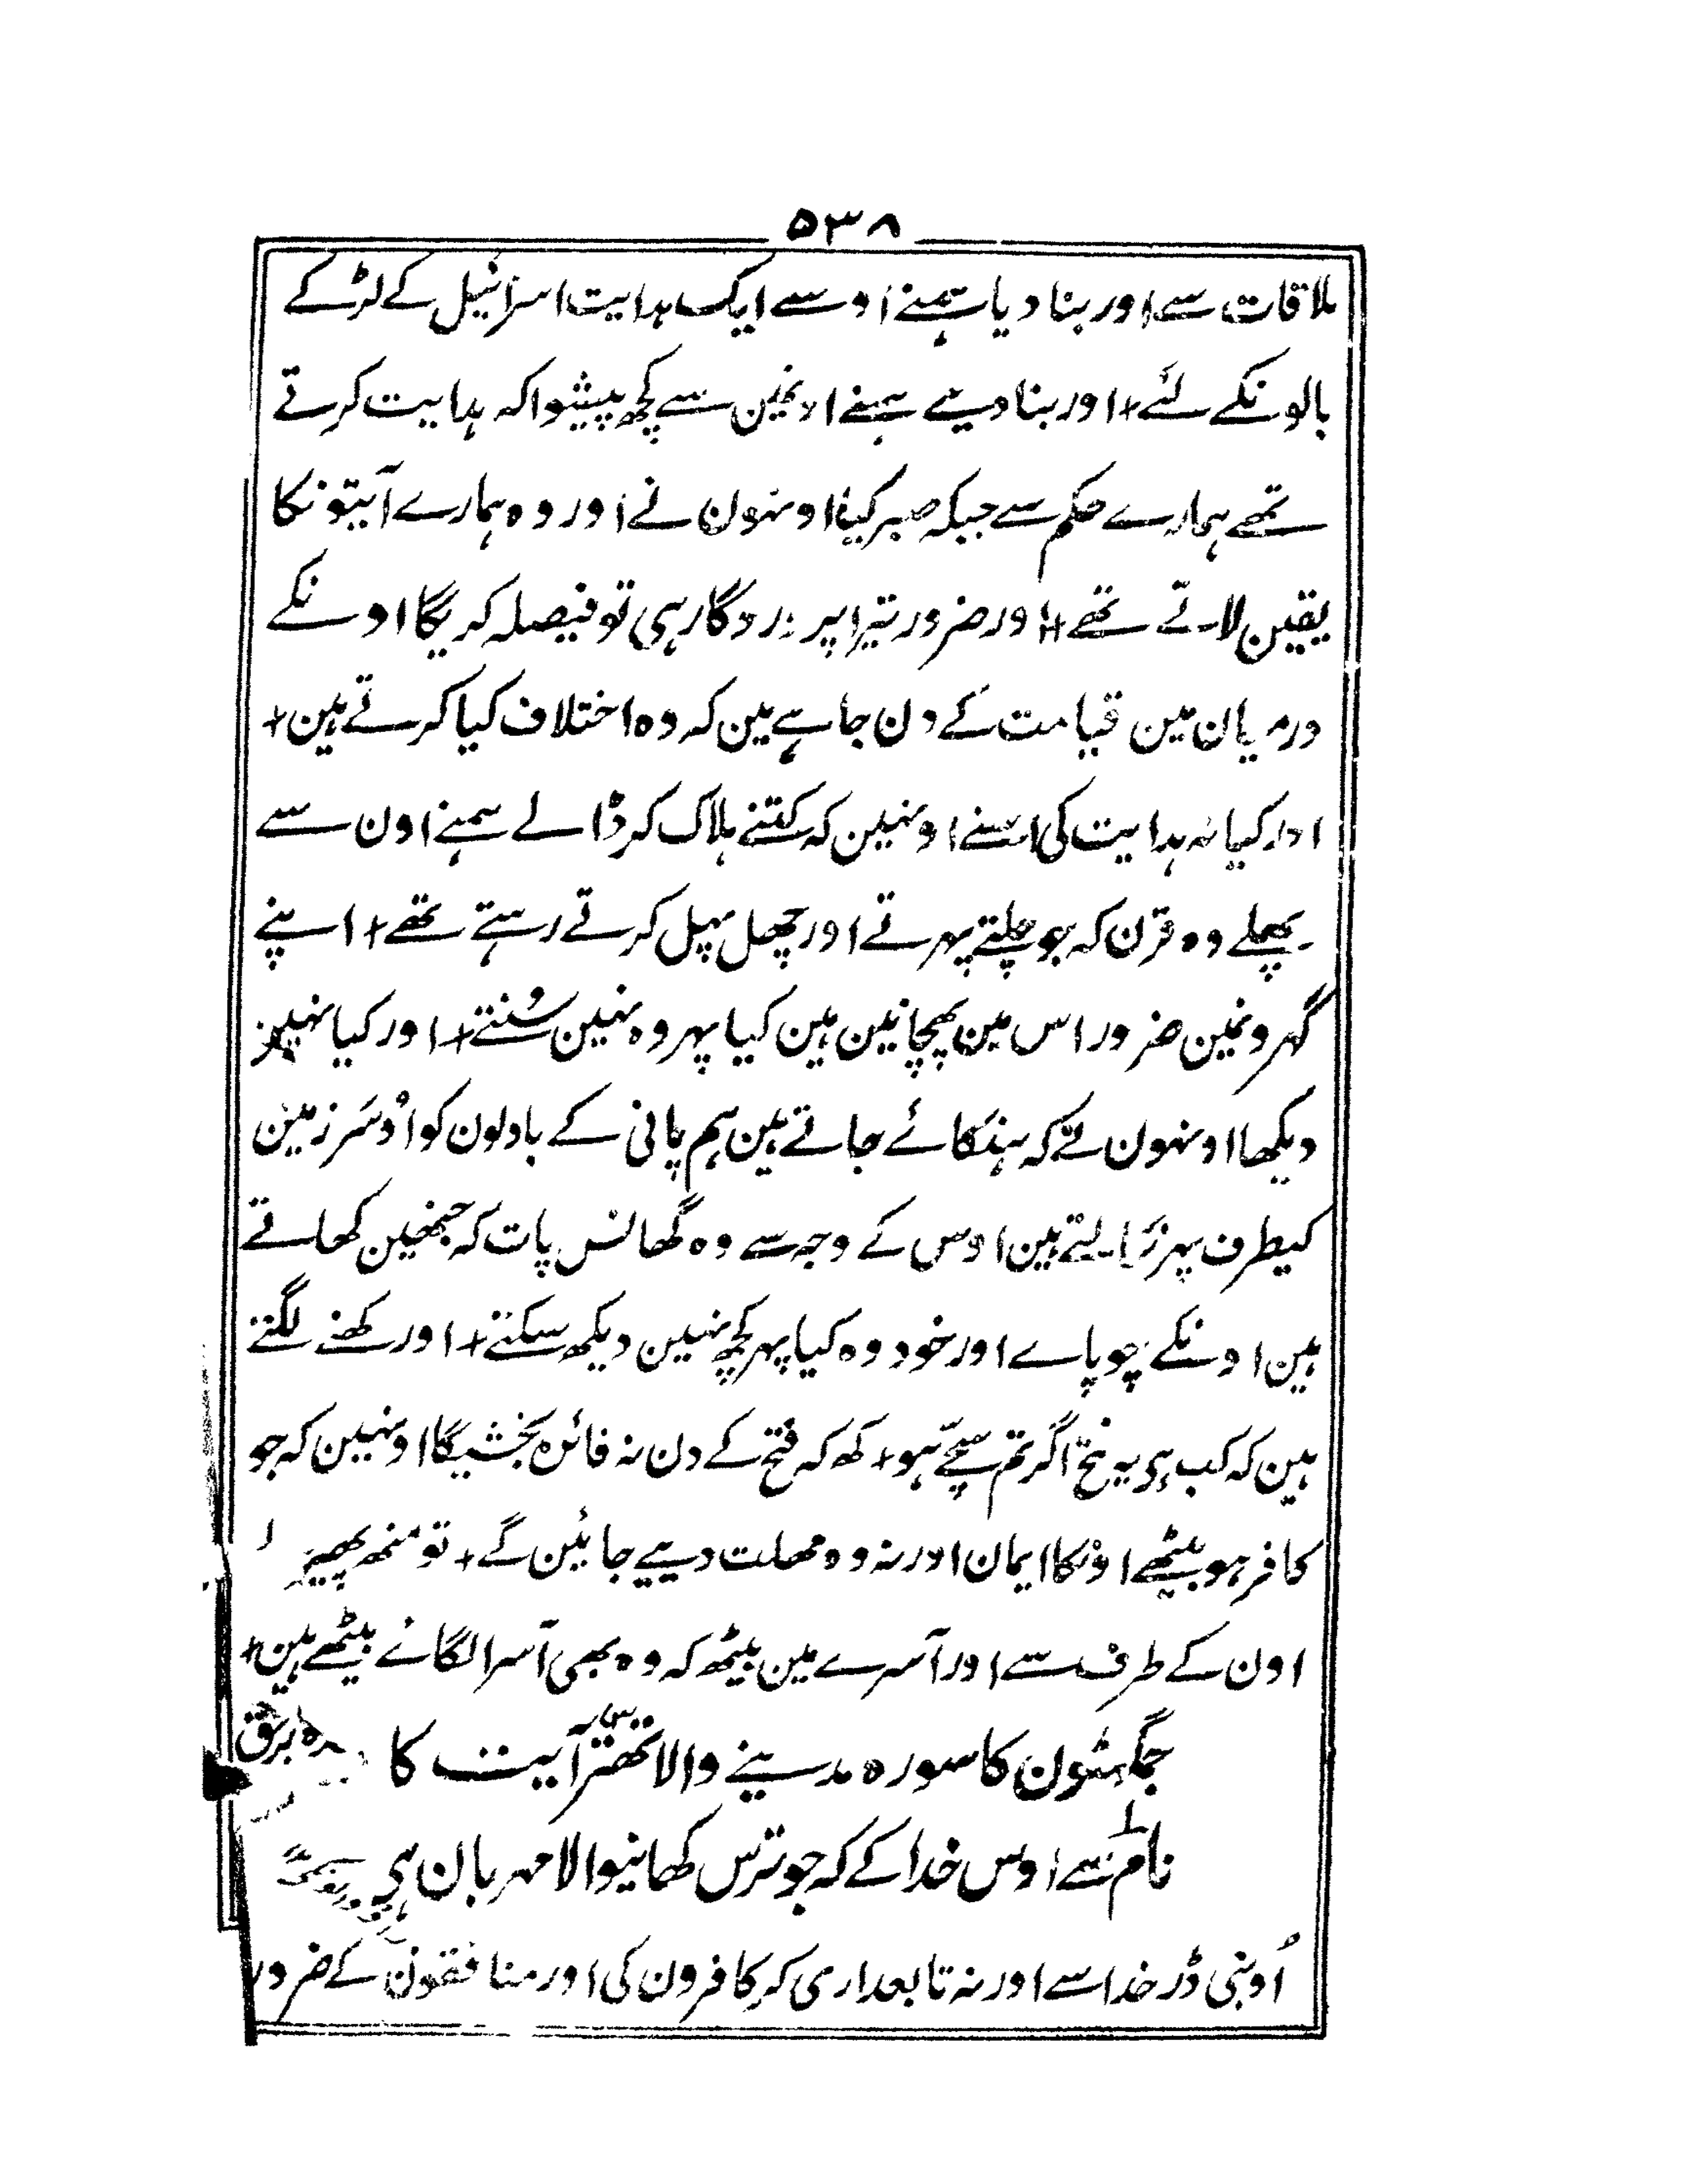 ۵۳۸
ملاقات سے اور بنا دیا ہمنے اوسے ایک ہدایت اسرائیل کے لڑکے
بالونکے لئے + اور بنا دیے ہمنے اونمین سے کچھ پیشوا کہ ہدایت کرتے
تھے ہمارے حکم سے جبکہ صبر کیا اونہون نے اور وہ ہمارے آیتونکا
یقین لاتے تھے + اور ضرور تیرا پروردگار ہی تو فیصلہ کریگا اونکے
درمیان مین قیامت کے دن جاہے مین کہ وہ اختلاف کیا کرتے ہین +
اور کیا نہ ہدایت کی اسنے اونہین کہ کتنے ہلاک کر ڈالے ہمنے اون سے
پچھلے وہ قرن کہ جو چلتے پہرتے اور چھل پہل کرتے رہتے تھے + اپنے
گہرونمین ضرور اس مین پہچانین ہین کیا پہر وہ نہین سُنتے + اور کیا نہین
دیکھا اونہون نے کہ ہنکائے جاتے ہین ہم پانی کے بادلون کو اوُسَر زمین
کیطرف پہر نکالتے ہین اوس کے وجہ سے وہ گھانس پات کہ جنھین کھاتے
ہین اونکے چوپاے اور خود وہ کیا پہر کچھ نہین دیکھ سکتے + اور کھنے لگتے
ہین کہ کب ہی یہ فتح اگر تم سچّے ہو + کھ کہ فتح کے دن نہ فائدہ بخشیگا اونہین کہ جو
کافر ہو بیٹھے اوُنکا ایمان اور نہ وہ مھلت دییے جائین گے + تو منھ پھیر
اون کے طرف سے اور آسرے مین بیٹھ کہ وہ بھی آسرا لگائے بیٹھے ہین +
جگھٹون کا سورہ مدینے والا تھتّر آیت کا
نام سے اوس خدا کے کہ جو ترس کھانیوالا مہربان ہی
اُو نبی ڈر خدا سے اور نہ تابعداری کر کافرون کی اور منافقون کے ضرور